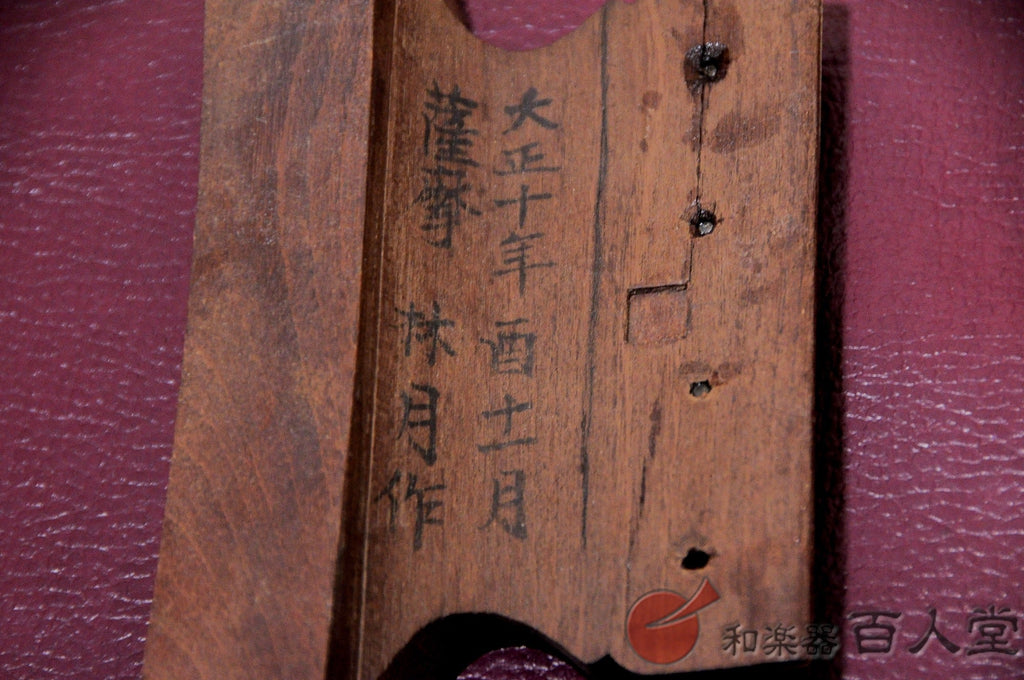 大正十年 酉十一月
薩摩 林月作
和楽器 百人堂